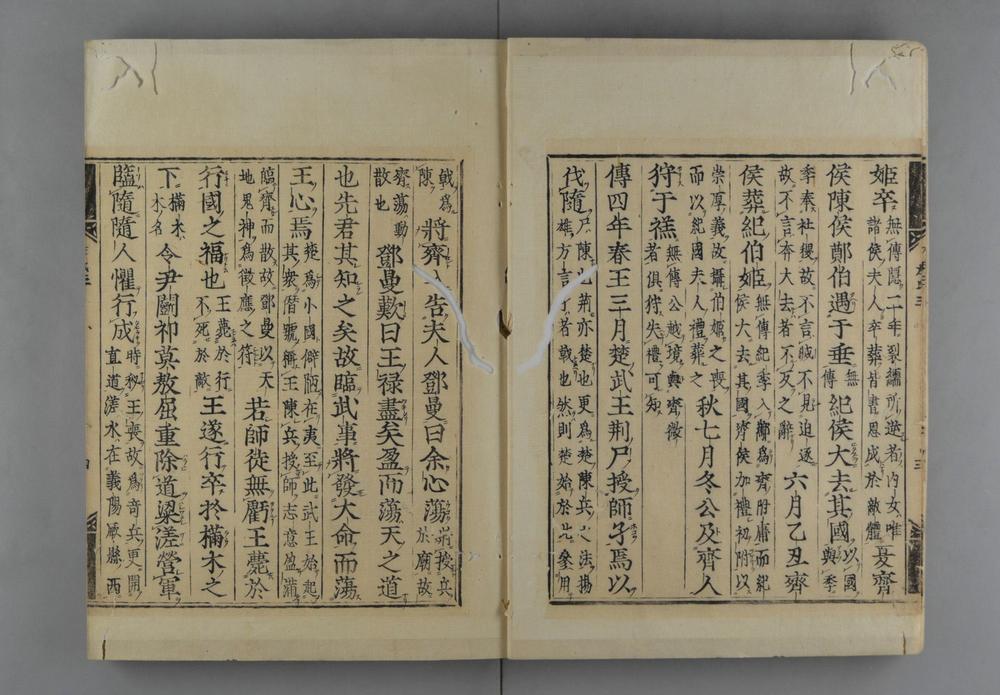 姬卒無傳隱二年裂繻所逆者内女唯諸侯夫人卒葬皆書恩成於敵體夏齊
侯陳侯鄭伯遇于垂無傳紀侯大去其國以國與季
季奉社稷故不言滅不見迫逐故不言奔大去者不反之辭六月乙丑齊
侯葬紀伯姬無傳紀季入酅爲齊附庸而紀侯大去其國齊侯加禮初附以
崇厚義故攝伯姬之喪而以紀國夫人禮葬之秋七月冬公及齊人
狩于禚無傳公越境與齊微者俱狩失禮可知
傳四年春王三月楚武王荆尸授師孑焉以
伐隨尸陳也荆亦楚也更爲楚陳兵之法揚雄方言孑者戟也然則楚始於此參用
戟爲陳將齊入告夫人鄧曼曰余心蕩將授兵於廟故
齊蕩動散也鄧曼歎曰王禄盡矣盈而蕩天之道
也先君其知之矣故臨武事將發大命而蕩
王心焉楚爲小國僻陋在夷至此武王始起其衆僭號稱王陳兵授師志意盈滿
臨齊而散故鄧曼以天地鬼神爲徵應之符若師徒無虧王薨於
行國之福也王薨於行不死於敵王遂行卒於樠木之
下樠木木名令尹鬬祁莫敖屈重除道梁溠營軍
臨隨隨人懼行成時秘王喪故爲奇兵更開直道溠水在義陽厥縣西